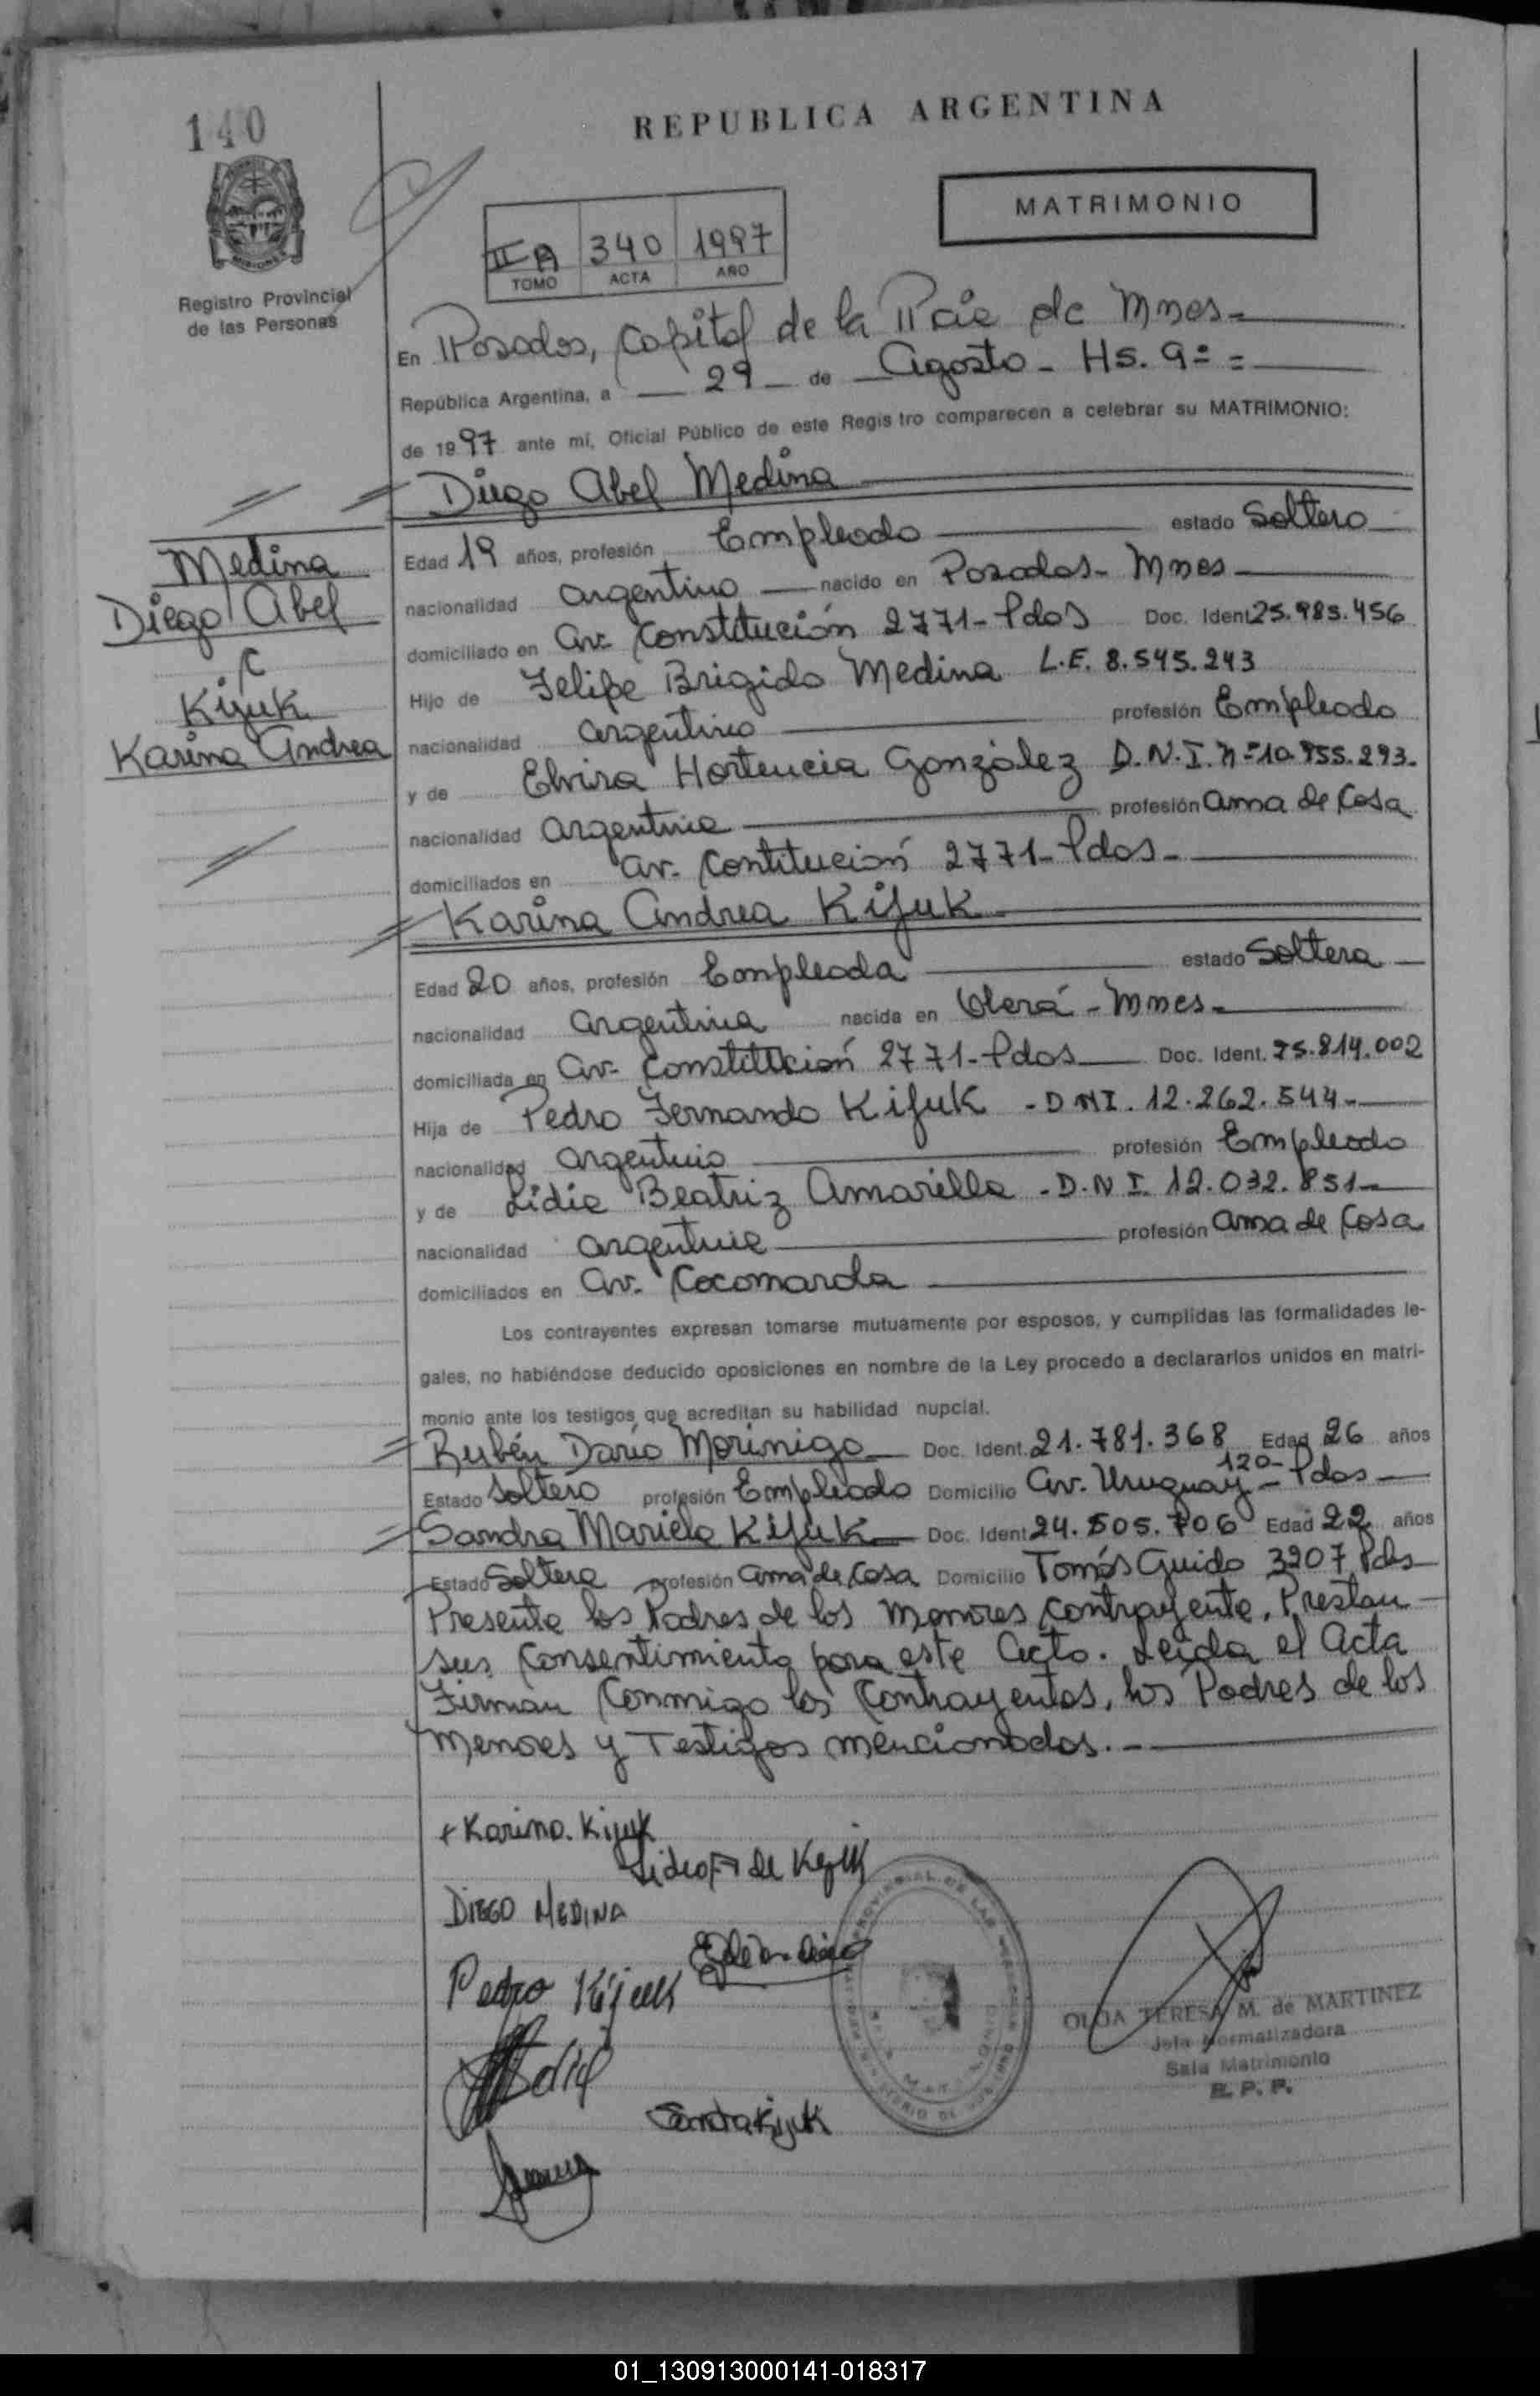 140
REPUBLICA ARGENTINA
MATRIMONIO
II A 340 1997
TOMO ACTA AÑO
Registro Provincial
de las Personas
En Posadas, Capital de la Pcia de Mnes-
República Argentina, a 29 de Agosto - Hs. 9=
de 1997 ante mí, Oficial Público de este Registro comparecen a celebrar su MATRIMONIO:
Diego Abel Medina
Edad 19 años, profesión Empleado estado Soltero
nacionalidad argentino nacido en Posadas- Mnes
domiciliado en av. Constitución 2771- Pdas Doc. Ident 25.983.456
Hijo de Felipe Brigido Medina L.E. 8.545.243
nacionalidad argentino profesión Empleado
y de Elvira Hortencia González D.N.I. nº 10.955.293.
nacionalidad argentina profesión ama de Casa
domiciliados en av. Contitución 2771- Pdas-
Medina
Diego Abel
C
Kijuk
Karina Andrea
Karina Andrea Kijuk
Edad 20 años, profesión Empleada estado Soltera
nacionalidad argentina nacida en Oberá - Mnes-
domiciliada en av. Constitución 2771- Pdas Doc. Ident. 25.814.002
Hija de Pedro Fernando Kijuk - DNI. 12.262.544-
nacionalidad argentino profesión Empleado
y de Lidia Beatriz Amarilla - D.N.I. 12.032.851-
nacionalidad argentina profesión ama de Casa
domiciliados en av. Cocomarola
Los contrayentes expresan tomarse mutuamente por esposos, y cumplidas las formalidades le-
gales, no habiéndose deducido oposiciones en nombre de la Ley procedo a declararlos unidos en matri-
monio ante los testigos que acreditan su habilidad nupcial.
Rubén Darío Morinigo Doc. Ident. 21.781.368 Edad 26 años
Estado Soltero profesión Empleado Domicilio av. Uruguay 120- Pdas
Sandra Mariela Kijuk Doc. Ident 24.505.706 Edad 22 años
Estado Soltera profesión ama de Casa Domicilio Tomás Guido 3207 Pdas
Presente los Padres de los menores contrayente. Prestan
sus Consentimiento para este acto. Leída el acta
Firman Conmigo los Contrayentes, los Padres de los
menores y Testigos mencionados.-
Karina. Kijuk
Lidia A de Kijuk
DIEGO MEDINA
Pedro Kijuk
Sandra Kijuk
OLGA TERESA M. de MARTINEZ
Jefa Normalizadora
Sala Matrimonio
R. P. P.
01_130913000141-018317